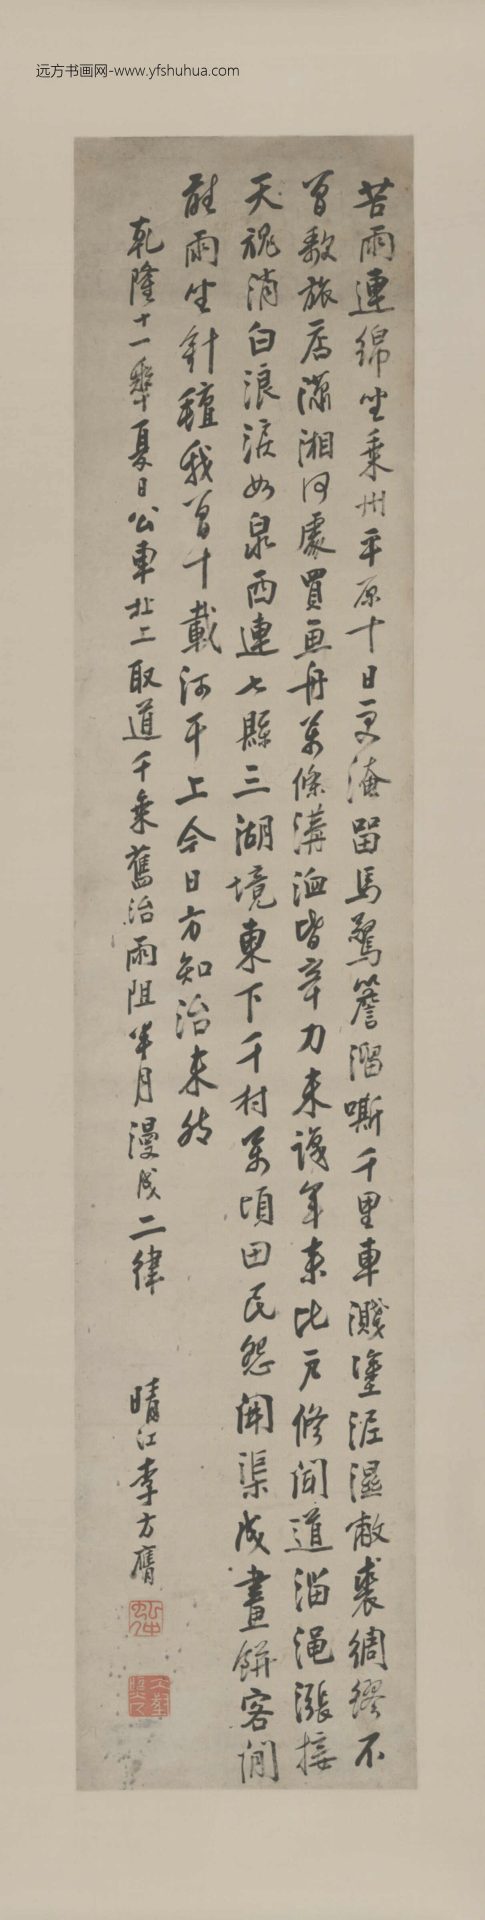 远方书画网-www.yfshuhua.com
苦雨連綿坐乗州平原十日更淹留馬驚簷溜嘶千里車濺塗泥濕敝裘綢繆不
曾敷旅店瀟湘何處買魚舟萬條溝洫皆辛力来識年来比戸修聞道淄澠漲接
天魂消白浪淚如泉西連七縣三湖境東下千村萬頃田民怨開渠成畫餅客
雨坐針氊我曾十載河干上今日方知治未然
乾隆十一年夏日公車北上取道千乗舊治雨阻半月漫成二律
晴江李方膺